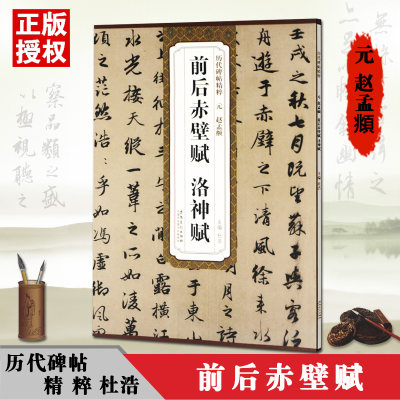 正版
授权
元 赵孟頫
历代碑帖精粹 元 赵孟頫
前后赤壁赋 洛神赋
主编 杜浩
壬戌之秋七月既望蘇子與客泛
舟遊于赤壁之下清風徐來水
月之詩
于東山
白露橫江
水光接天縱一葦之所如凌萬
之茫然浩浩乎如馮虛御風
察品類之盛
以極視聽之
幽情
历代碑帖
精 粹 杜浩
前后赤壁赋